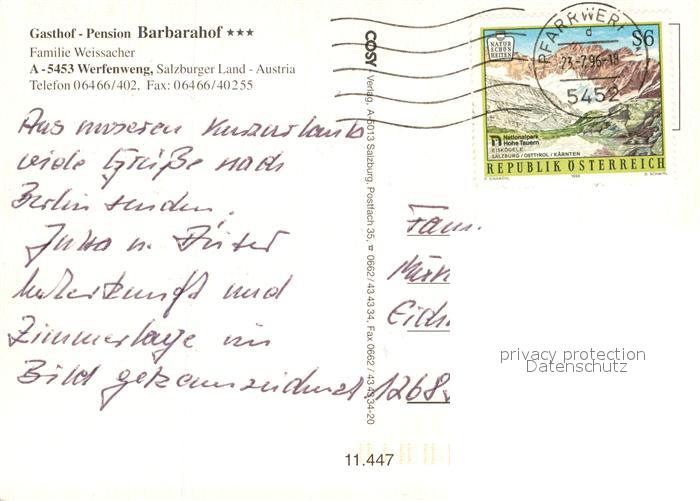 Gasthof - Pension Barbarahof ★★★
Familie Weissacher
A - 5453 Werfenweng, Salzburger Land - Austria
Telefon 06466/402, Fax: 06466/40255
Aus unserem Kurzurlaub
viele Grüße nach
Berlin senden.
Jutta u. Dieter
Unterkunft und
Zimmerlage im
Bild gekennzeichnet.
COSY Verlag, A-5013 Salzburg, Postfach 35, ☎ 0662/43 43 34, Fax 0662/43 43 34-20
NATUR
SCHÖN
HEITEN
S6
PFARRWERF
d
23.-7.96-18
5452
Nationalpark
Hohe Tauern
EISKÖGELE
SALZBURG/OSTTIROL/KÄRNTEN
REPUBLIK ÖSTERREICH
1996
Fam.
1268
privacy protection
Datenschutz
11.447